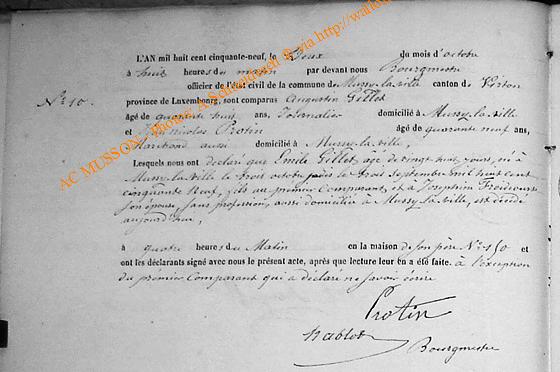 L'AN mil huit cent cinquante-neuf, le Deux du mois d'octobre
à huit heures du matin par devant nous Bourgmestre
officier de l'état civil de la commune de Mussy-la-ville canton de Virton
N° 10.
province de Luxembourg, sont comparus Augustin Gillet
âgé de quarante huit ans, Journalier domicilié à Mussy-la-ville
et nicolas Protin âgé de quarante neuf ans,
Marchand aussi domicilié à Mussy-la-ville,
Lesquels nous ont déclaré que Emile Gillet, age de vingt huit jours, né à
Mussy-la-ville le trois Septembre mil huit cent
cinquante Neuf, fils du premier Comparant, et à Joséphine
son épouse, sans profession, aussi domiciliée à Mussy-la-ville, est décédé
aujourd'hui,
à quatre heures du Matin en la maison de son père N° 150 et
ont les déclarants signé avec nous le présent acte, après que lecture leur en a été faite. à l'exception
du premier Comparant qui a déclaré ne savoir écrire
Protin
Bourgmestre
AC MUSSON - Photos: A. Schleich ® via http://wallo